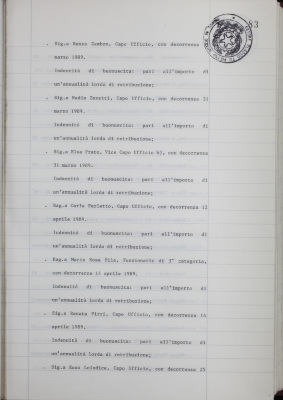 83
. Sig.a Renza Zambon, Capo Ufficio, con decorrenza
marzo 1989.
Indennità di buonuscita: pari all'importo di
un'annualità lorda di retribuzione;
. Sig.a Nadia Zanutti, Capo Ufficio, con decorrenza 31
marzo 1989.
Indennità di buonuscita: pari all'importo di
un'annualità lorda di retribuzione;
. Sig.a Elsa Prato, Vice Capo Ufficio, con decorrenza
31 marzo 1989.
Indennità di buonuscita: pari all'importo di
un'annualità lorda di retribuzione;
. Rag. Carlo, Capo Ufficio, con decorrenza 12
aprile 1989.
Indennità di buonuscita: pari all'importo di
un'annualità lorda di retribuzione;
. Rag.a Maria Rosa Fila, Funzionario di 3° categoria,
con decorrenza 14 aprile 1989.
Indennità di buonuscita: pari all'importo di
un'annualità lorda di retribuzione;
. Sig.a Renata, Capo Ufficio, con decorrenza 14
aprile 1989.
Indennità di buonuscita: pari all'importo di
un'annualità lorda di retribuzione;
. Sig.a Rosa Loiodice, Capo Ufficio, con decorrenza 25